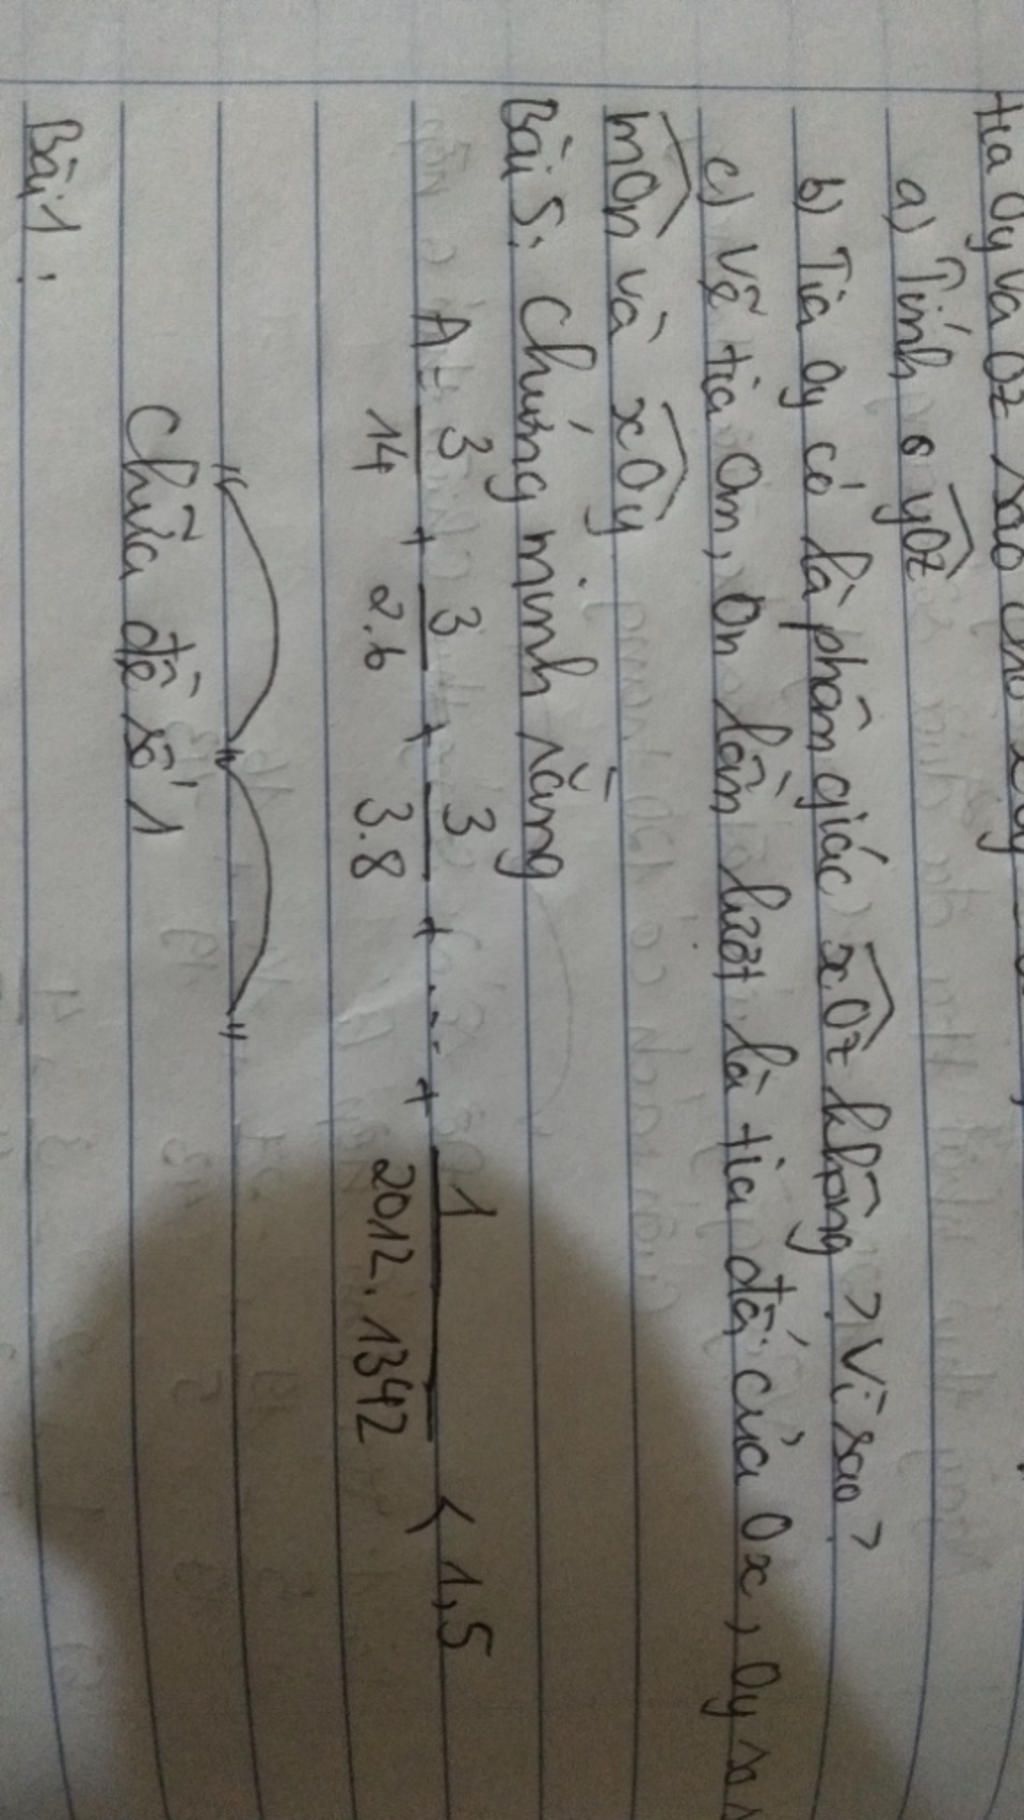 tia Oy và Oz sao cho
a) Tính yOz
b) Tia Oy có là phân giác xOz không? Vì sao?
c) Vẽ tia Om, On lần lượt là tia đối của Ox, Oy
mOn và xOy
Bài 5: Chứng minh rằng
A = 3/14 + 3/2.6 + 3/3.8 + ... + 1/2012.1342 < 1,5
Chữa đề số 1
Bài 1: